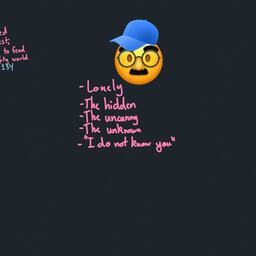 est,
to feed
world
134
- Lonely
- The hidden
- The uncanny
- The unknown
- "I do not know you"